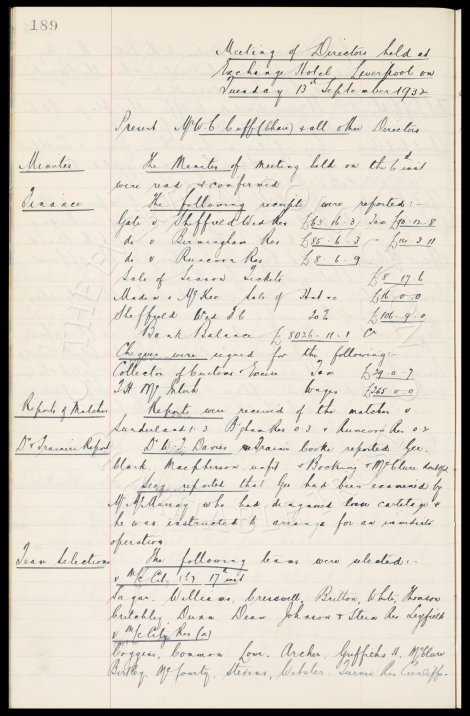 189
Meeting of Directors held at
Exchange Hotel, Liverpool on
Tuesday 13th September 1932
Present Mr W. C. Cuff (Chair) & all other Directors
Minutes The Minutes of meeting held on the 6th inst
were read & confirmed
Finance The following receipts were reported:-
Gate v Sheffield Wed Res £63.16.3 Tax
do v Birmingham Res £85.6.3
do v Runcorn Res £8.6.9
Sale of Season Tickets £8.17.6
Sale of £16.0.0
Sheffield Wed £106.9.0
Bank Balance £8026.11.1 Cr
Cheques were signed for the following:-
Collector of Customs & Excise Tax £39.0.7
T.H. McIntosh Wages £265.0.0
Reports of Matches Reports were received of the matches v
Sunderland 1.3 B'ham Res 0.3 & Runcorn Res 0.2
Dr & Trainers Report Dr W. J. Davies Trainer Cooke reported Gee
Clark, Macpherson unfit & Bocking & McClure
Secy reported that Gee had been examined by
Mr McMurray who had diagnosed loose cartelage &
he was instructed to arrange for an immediate
operation
Team Selections The following teams were selected:-
v M/c City 17th inst
Sagar, Williams, Cresswell, Britton, White, Thomson
Critchley, Dunn, Dean, Johnson & Stein Res Leyfield
v M/c City Res (a)
Coggins, Common, Lowe, Archer, Griffiths H. McClure
Birtley, McGourty, Stevens, Webster, Turner Res Cunliffe